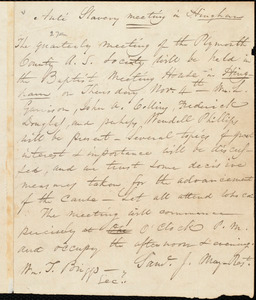 Anti Slavery meeting in Hingham
The quarterly meeting of the Plymouth
County A. S. Society will be held in
the Baptist Meeting House in Hing
ham on Thursday Nov. 4th Wm. L.
Garrison, John A. Collins, Frederick
Douglas, and perhaps, Wendell Phillips
will be present - Several topics of great
interest & importance will be discus
sed, and we trust some decisive
measures taken for the advancement
of the Cause - Let all attend who can
The meeting will commence
precisely at O'Clock P.M.
and occupy the afternoon & evening.
Saml. J. May - Pres.
Wm. T. Briggs - Sec.